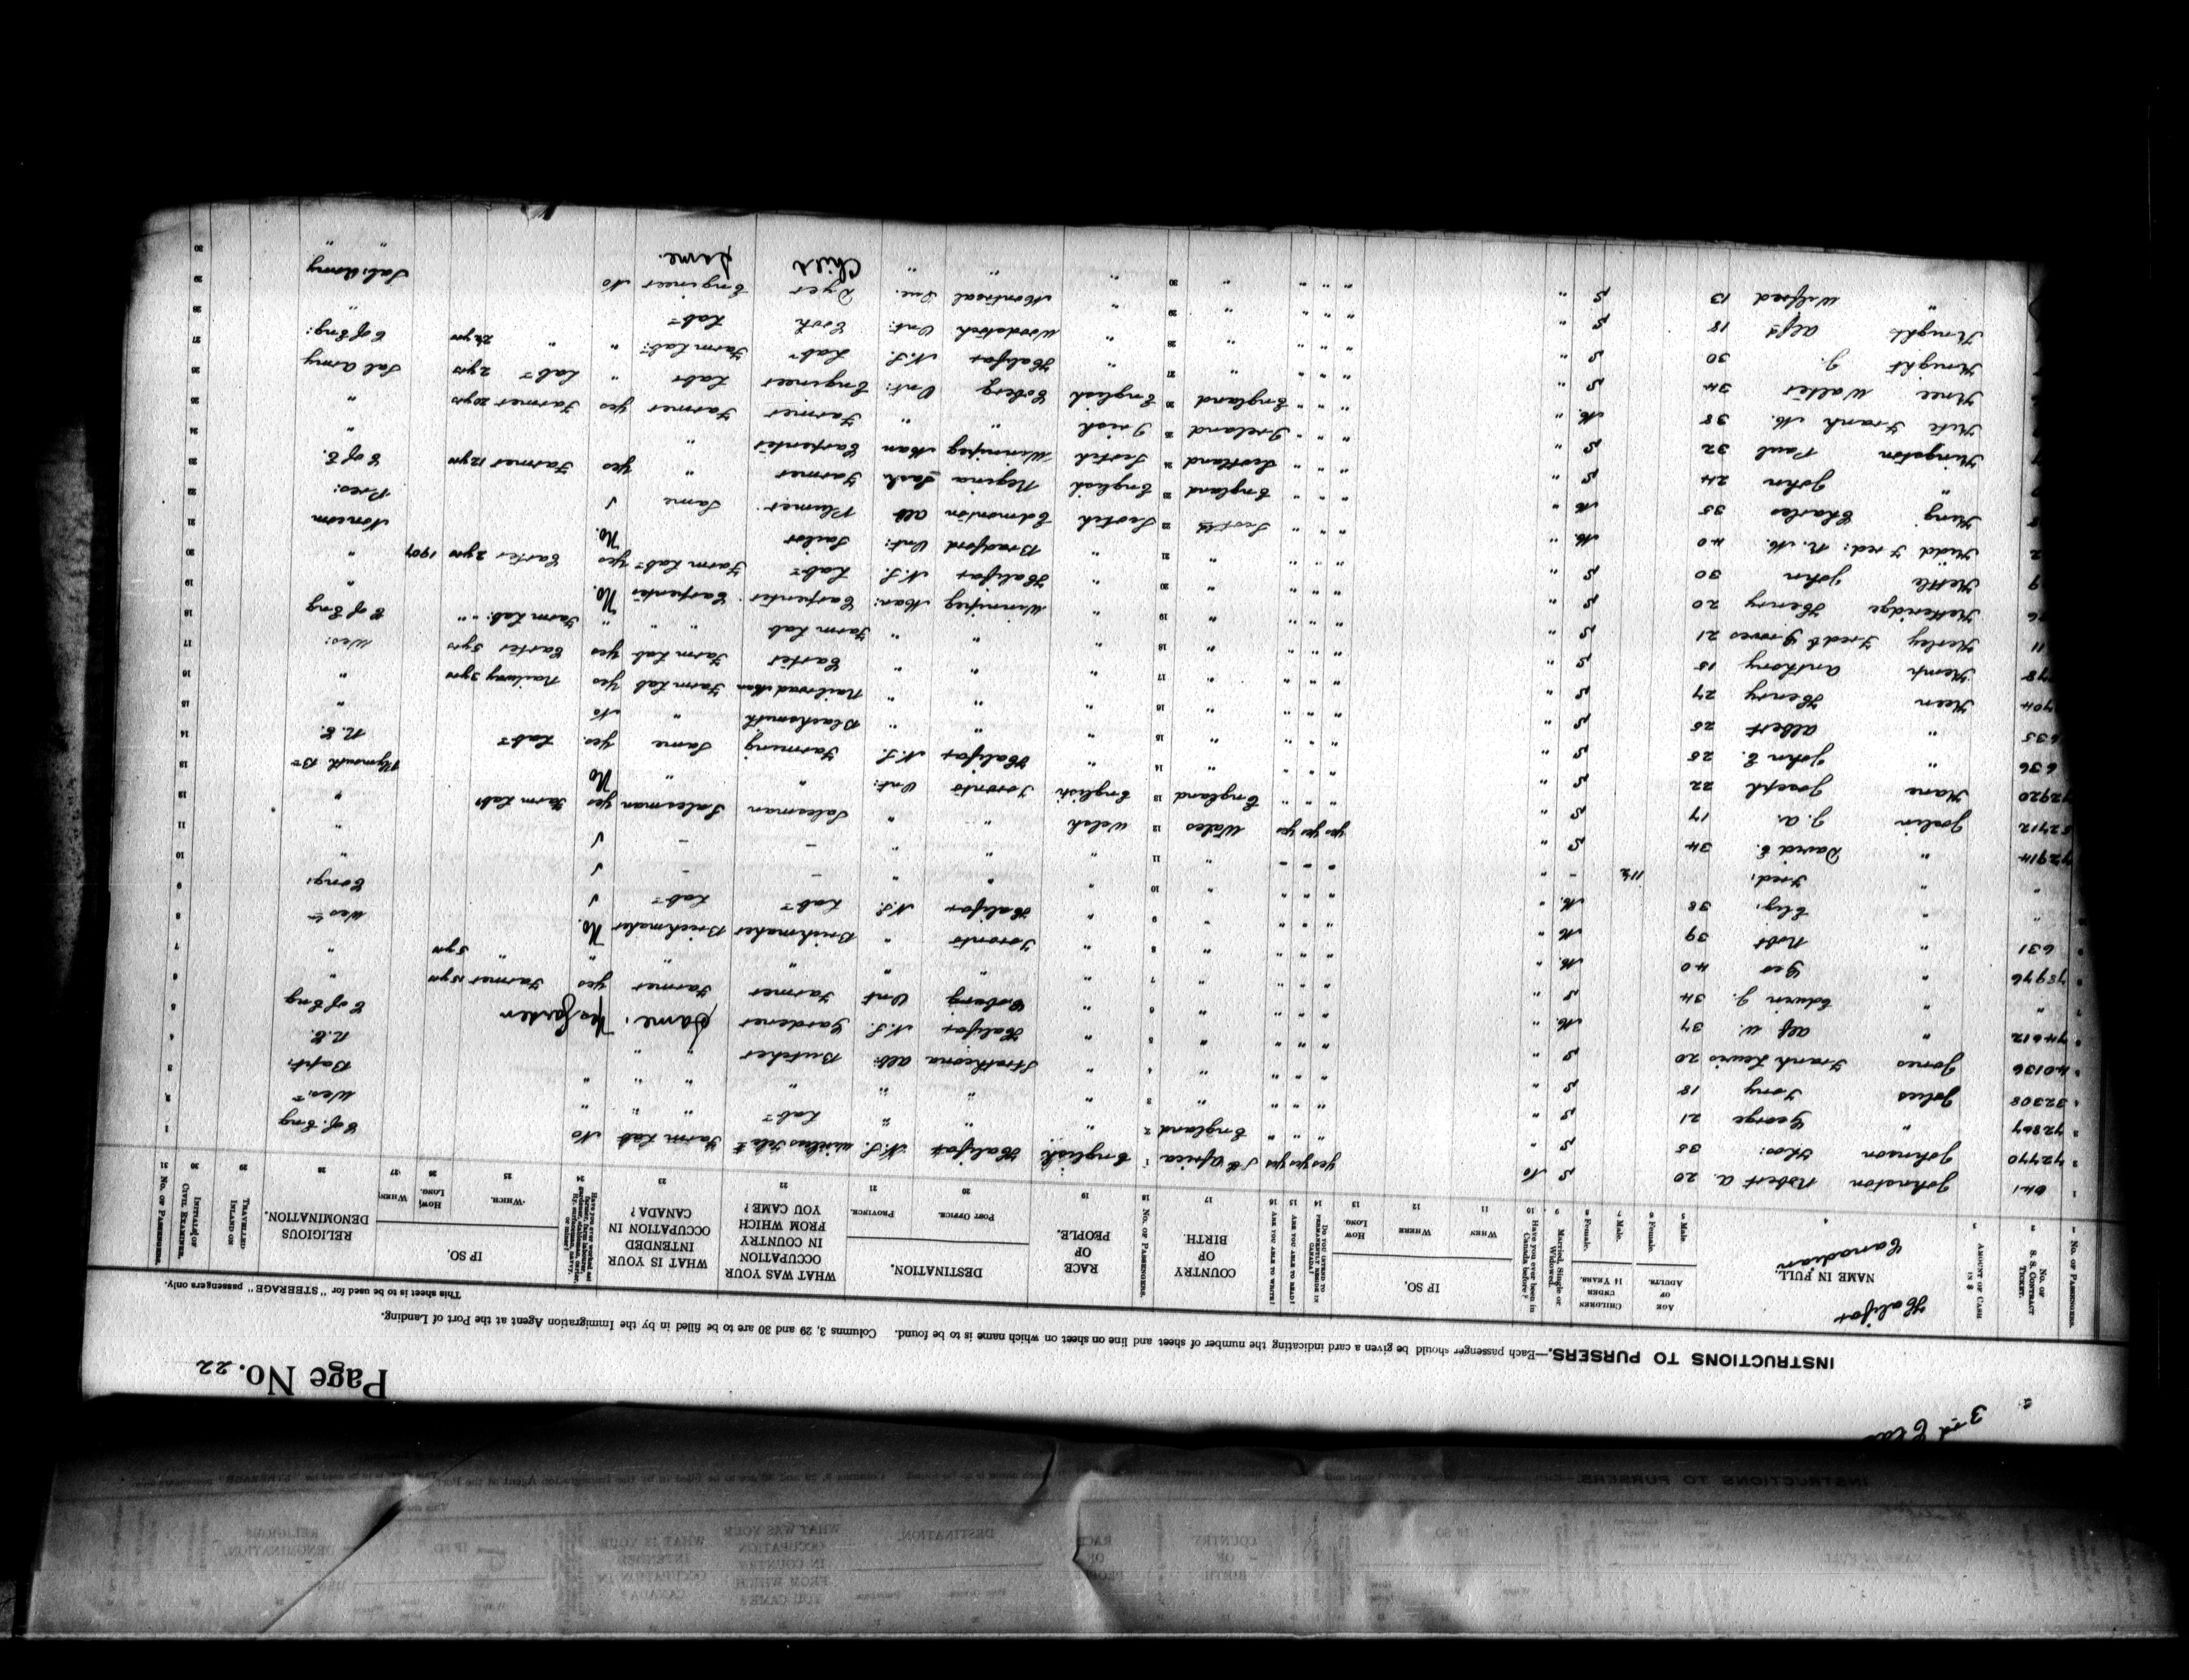 3rd Clas
Page No. 22
INSTRUCTIONS TO PURSERS.—Each passenger should be given a card indicating the number of sheet and line on sheet on which name is to be found. Columns 3, 29 and 30 are to be filled in by the Immigration Agent at the Port of Landing.
This sheet is to be used for "STEERAGE" passengers only.
Halifax
Canadian
No. of Passengers. No. of S. S. Contract Ticket. Amount of Cash in $ NAME IN FULL. AGE OF ADULTS. CHILDREN UNDER 14 YEARS. Married, Single or Widowed. Have you ever been in Canada before? IF SO. Do you intend to permanently reside in Canada? Are you able to read? Are you able to write? COUNTRY OF BIRTH. No. of Passengers. RACE OF PEOPLE. DESTINATION. WHAT WAS YOUR OCCUPATION IN COUNTRY FROM WHICH YOU CAME? WHAT IS YOUR INTENDED OCCUPATION IN CANADA? IF SO. RELIGIOUS DENOMINATION. Travelled Inland on Initials of Civil Examiner. No. of Passengers.
Male. Female. Male. Female. When Where How Long. Post Office. Province. Which. How Long When
1 641 Johnston Robert A. 20 S No yes yes yes S. Africa 1 English Halifax N.S. Wireless Farm Lab No C of Eng 1
2 72770 Johnson Thos: 35 S " " " " England 2 " " " Lab " " " Wes. 2
3 72867 " George 21 S " " " " " 3 " " " " " " Bapt: 3
32308 Jolies Tony 18 S " " " " " 4 " Strathcona Alb: Butcher " " R.C. 4
40136 Jones Frank Lewis 20 S " " " " " 5 " Halifax N.S. Gardener Same. Yes Garden C of Eng 5
74612 " Alf. W. 37 M. " " " " " 6 " Coburg Ont Farmer Farmer yes Farmer 15 yrs " 6
" " Edwin J. 34 S " " " " " 7 " " " " " " " 5 yrs " 7
78976 " Geo 40 M. " " " " " 8 " Toronto " Brickmaker Brickmaker No. Wes 8
631 " Robt 39 M " " " " " 9 " Halifax N.S. Labr Labr Cong: 9
" " Eliz: 38 M. " " " " " 10 " " " - - " 10
" " Fred: 11½ - " " - - " 11 " " " - - " 11
72914 " David E. 34 S " yes yes yes Wales 12 Welsh " " Salesman Salesman yes Farm Labr " 12
52712 Joslin J.A. 17 S " " " " England 13 English Toronto Ont: " " No Plymouth Br 13
72920 Kane Joseph 22 S " " " " " 14 " Halifax N.S. Farming Same yes. Labr R.C. 14
636 " John E. 25 S " " " " " 15 " " " Blacksmith " No " 15
635 " Albert 25 S " " " " " 16 " " " Railroad Man Farm Lab Yes Railway 3 yrs " 16
704 Keen Henry 27 S " " " " " 17 " " " Carter Farm Lab yes Carter 5 yrs Wes: 17
78 Kemp Anthony 18 S " " " " " 18 " " " Farm Lab " " Farm Lab. " C of Eng 18
11 Kerley Fredk Groves 21 S " " " " " 19 " Winnipeg Man: Carpenter Carpenter No. " 19
26 Ketteridge Henry 20 S " " " " " 20 " Halifax N.S. Labr Farm Labr yes Carter 2 yrs 1907 " 20
9 Kettle John 30 S " " " " " 21 " Bradford Ont: Sailor No. Noncom 21
2 Kidd Fred: R. M. 40 M. " " " " Scotld 22 Scotch Edmonton Alb Plumer Same Pres: 22
King Charles 35 M " " " " England 23 English Regina Sask Farmer " yes Farmer 12 yrs C of E. 23
" John 24 S " " " " Scotland 24 Scotch Winnipeg Man Carpenter " " 24
Kingston Paul 32 S " " " " Ireland 25 Irish " " Farmer Farmer yes Farmer 20 yrs " 25
Kite Frank M. 38 M. " " " " England 26 English Coberg Ont: Engineer Labr " Labr 2 yrs Sal Army 26
Knee Walter 34 S " " " " " 27 " Halifax N.S. Labr Farm Lab: " " 2½ yrs C of Eng: 27
Knight J. 30 S " " " " " 28 " Woodstock Ont: Cook Labr " 28
Knight Alfd 18 S " " " " " 29 " Montreal Que. Dyer Engineer No Sal: Army 29
" Wilfred 13 S " " " " " 30 " " " Child Same. " 30